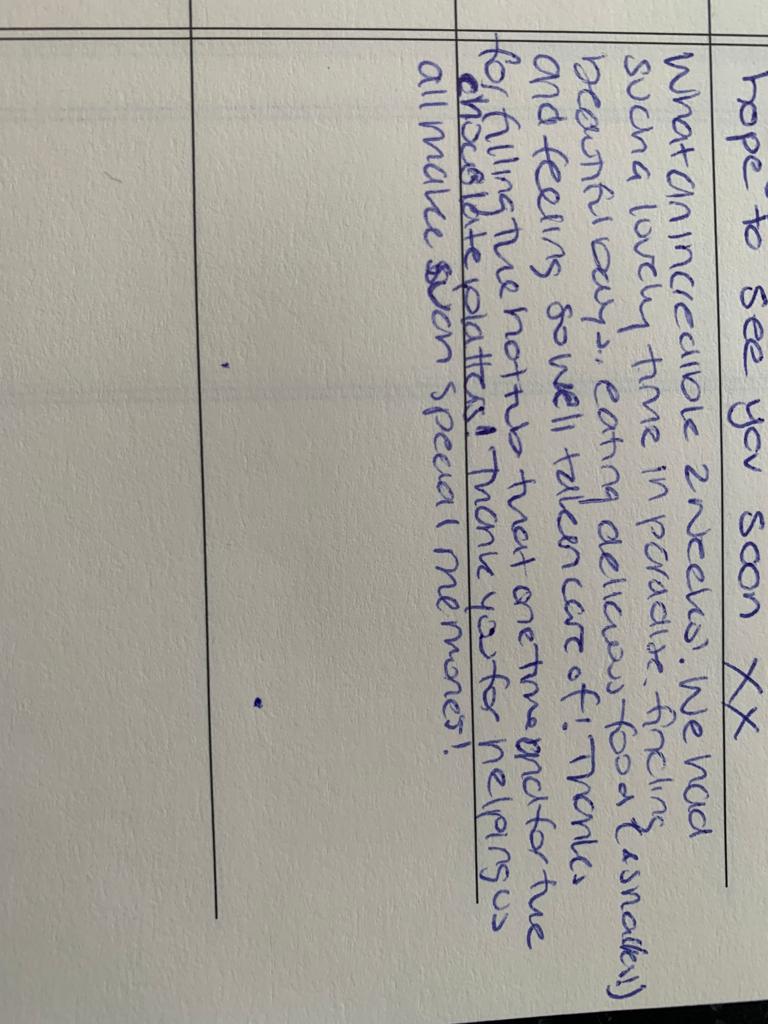 hope to see you soon XX
What an incredible 2 weeks!. We had
such a lovely time in paradise. finding
beautiful bays, eating delicious food (& snacks!)
and feeling so well taken care of! Thanks
for filling the hot tub that one time and for the
chocolate platters! Thank you for helping us
all make such special memories!